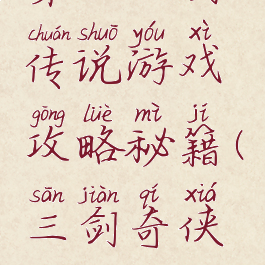 chuán shuō yóu xì
传说游戏
gōng lüè mì jí
攻略秘籍(
sān jiàn qí xiá
三剑奇侠